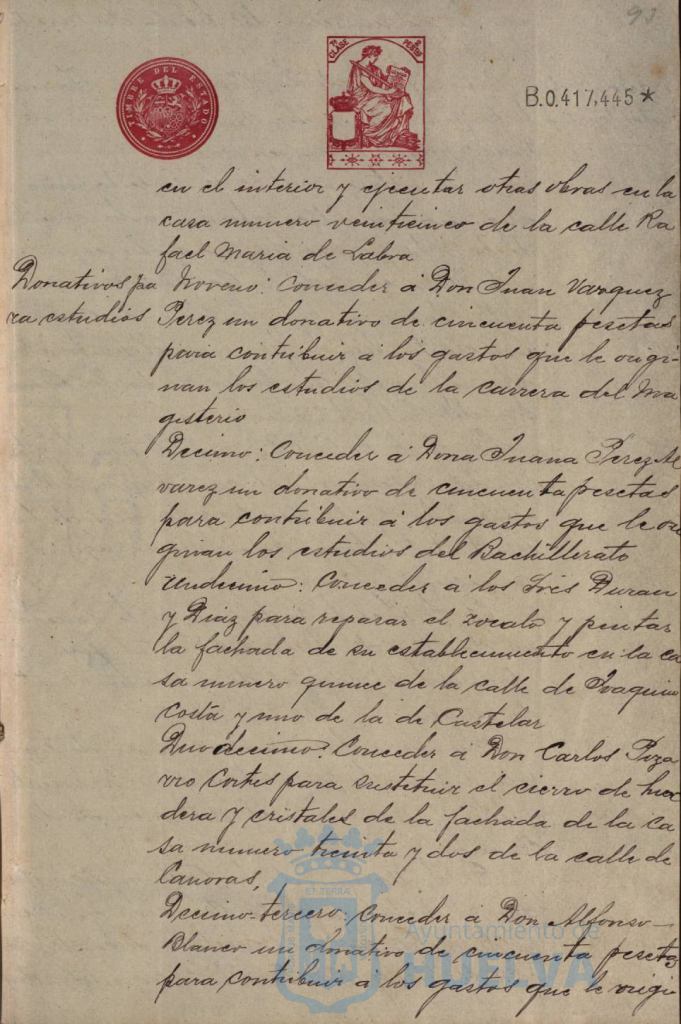 93
TIMBRE DEL ESTADO
7ª CLASE
PESTAS
B.0.417,445*
en el interior y ejecutar otras obras en la
casa numero veinticinco de la calle Ra
fael Maria de Labra
Donativos pa
ra estudios
Noveno: Conceder á Don Juan Vazquez
Perez un donativo de cincuenta pesetas
para contribuir á los gastos que le origi-
nan los estudios de la carrera del Ma
gisterio
Decimo: Conceder á Dona Juana Perez Al
varez un donativo de cincuenta pesetas
para contribuir á los gastos que le ori
ginan los estudios del Bachillerato
Undecimo: Conceder á los Srés Duran
y Diaz para reparar el zocalo y pintar
la fachada de su establecimiento en la ca
sa numero quince de la calle de Joaquin
Costa y uno de la de Castelar
Duodecimo: Conceder á Don Carlos
Cortés para sustituir el cierro de
dera y cristales de la fachada de la ca
sa numero treinta y dos de la calle de
Canovas,
Decimo-tercero: Conceder á Don Alfonso
Blanco un donativo de cincuenta pesetas
para contribuir á los gastos que le origi
Ayuntamiento de
HUELVA